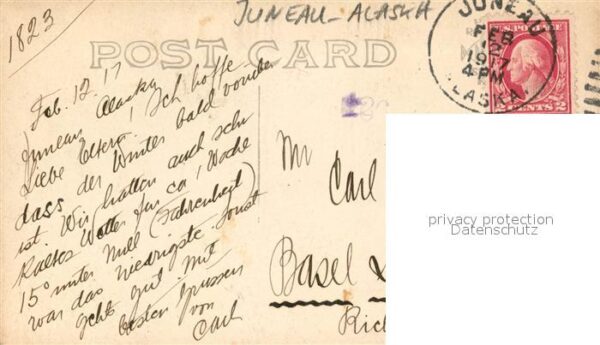 1823
JUNEAU - ALASKA
POST CARD
JUNEAU
FEB
12
1917
4 PM
ALASKA
CENTS 2
Feb. 12. 17
Juneau Alaska
Liebe Eltern! Ich hoffe
dass der Winter bald vorüber
ist. Wir hatten auch sehr
kaltes Wetter für ca 1 Woche
15° unter Null (Fahrenheit)
war das niedrigste. Sonst
geht gut. Mit
besten Grüssen
von
Carl
Mr
Carl
Basel
privacy protection
Datenschutz